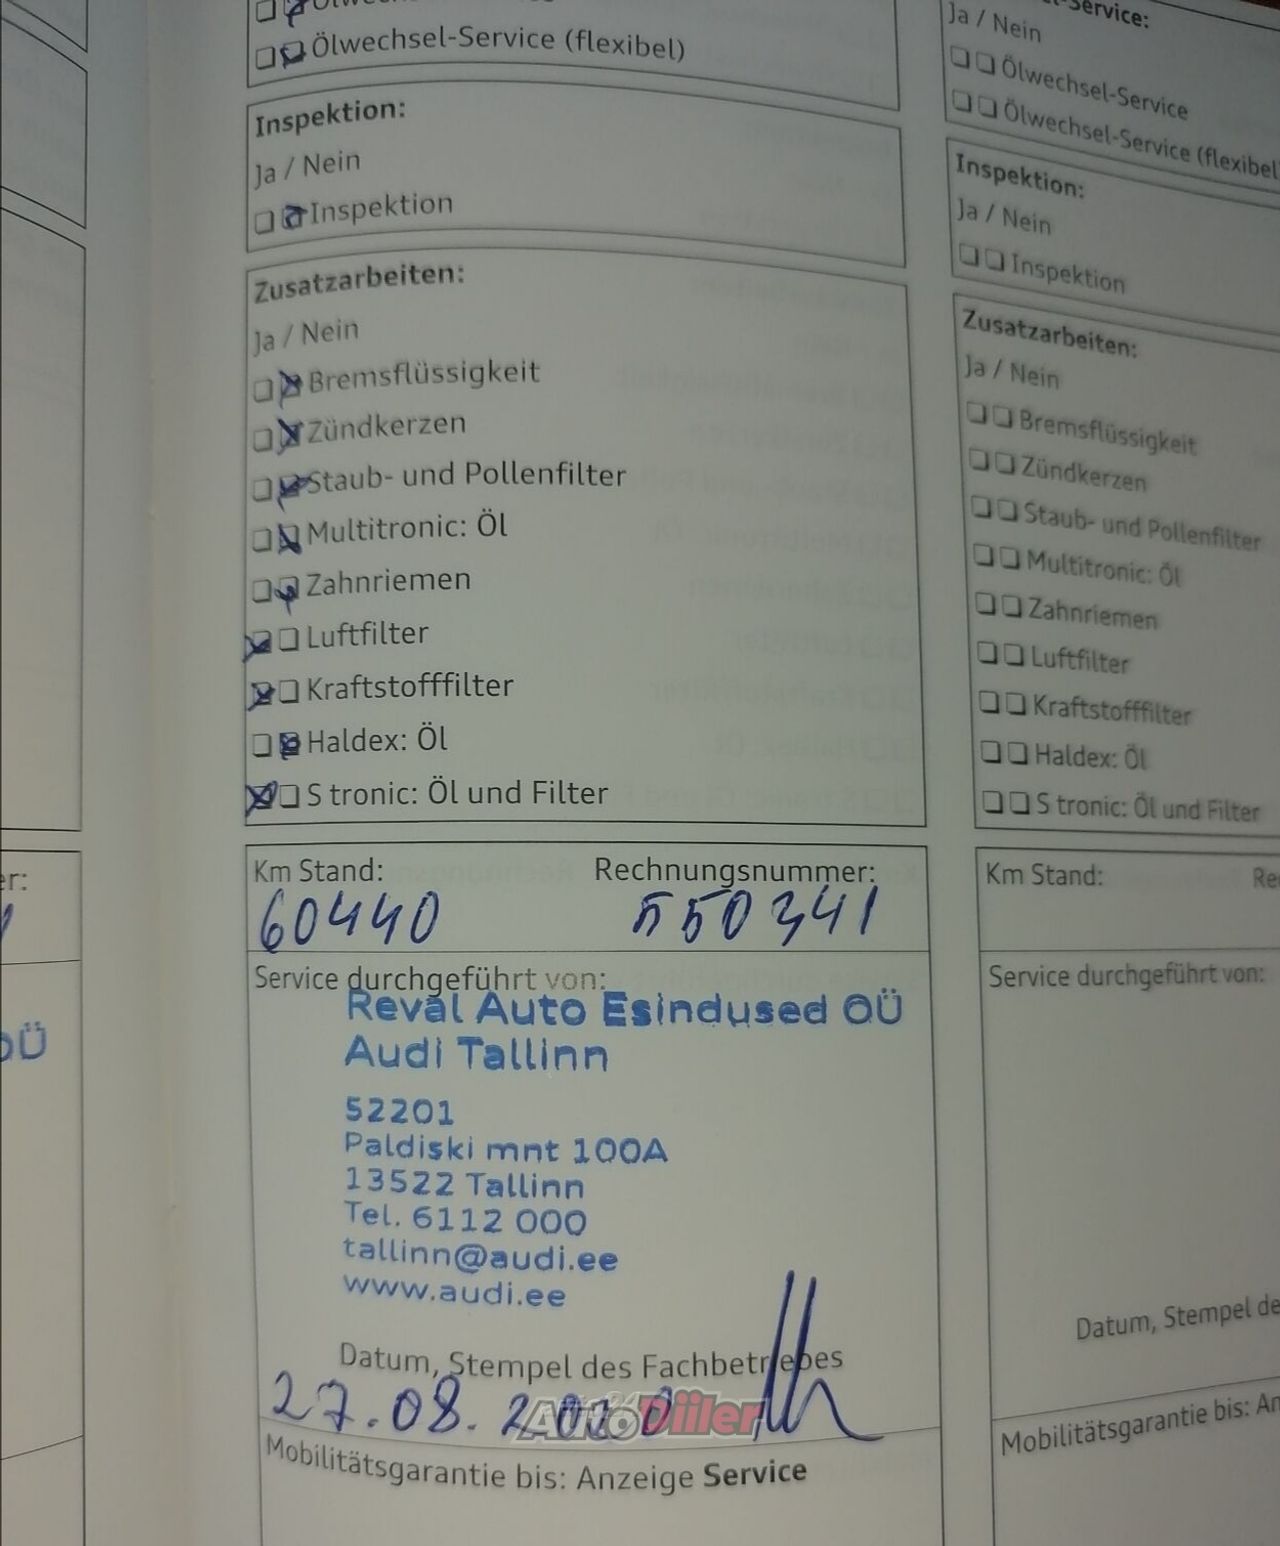 Ölwechsel-Service (flexibel)
Inspektion:
Ja / Nein
Inspektion
Zusatzarbeiten:
Ja / Nein
Bremsflüssigkeit
Zündkerzen
Staub- und Pollenfilter
Multitronic: Öl
Zahnriemen
Luftfilter
Kraftstofffilter
Haldex: Öl
S tronic: Öl und Filter
Km Stand: Rechnungsnummer:
60440 550341
Service durchgeführt von:
Reval Auto Esindused OÜ
Audi Tallinn
52201
Paldiski mnt 100A
13522 Tallinn
Tel. 6112 000
tallinn@audi.ee
www.audi.ee
Datum, Stempel des Fachbetriebes
27.08.2020
AutoDiiler
Mobilitätsgarantie bis: Anzeige Service
Ja / Nein
Ölwechsel-Service
Ölwechsel-Service (flexibel
Inspektion:
Ja / Nein
Inspektion
Zusatzarbeiten:
Ja / Nein
Bremsflüssigkeit
Zündkerzen
Staub- und Pollenfilter
Multitronic: Öl
Zahnriemen
Luftfilter
Kraftstofffilter
Haldex: Öl
S tronic: Öl und Filter
Km Stand:
Service durchgeführt von:
Datum, Stempel de
Mobilitätsgarantie bis: An
OÜ